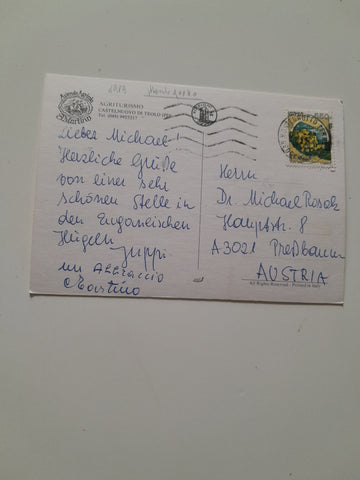 Azienda Agricola
AGRITURISMO
CASTELNUOVO DI TEOLO (PD)
Lieber Michael!
Herzliche Grüße
von einer sehr
schönen Stelle in
den Euganeischen
Hügeln
Juppi
un Abbraccio
Martino
Herrn
Dr. Michael
Hauptstr. 8
A3021 Preßbaum
AUSTRIA
All Rights Reserved - Printed in Italy